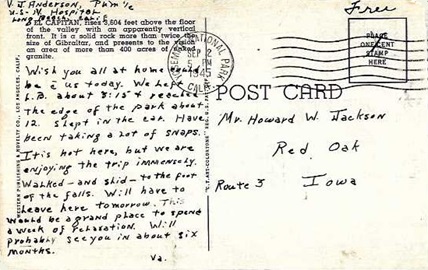 V. J. Anderson, PhM 1/c
U.S.N. Hospital
Long Beach, Calif.
EL CAPITAN, rises 3,604 feet above the floor
of the valley with an apparently vertical
front. It is a solid rock more than twice the
size of Gibraltar, and presents to the vision
an area of more than 400 acres of naked
granite.
Wish you all at home could
be c̄ us today. We left
L.B. about 3:15 & reached
the edge of the park about
12. Slept in the car. Have
been taking a lot of snaps.
It is hot here, but we are
enjoying the trip immensely.
Walked-and skid-to the foot
of the falls. Will have to
leave here tomorrow. This
would be a grand place to spend
a week of relaxation. Will
probably see you in about six
months.
Va.
WESTERN PUBLISHING & NOVELTY CO., LOS ANGELES, CALIF.
YOSEMITE NATIONAL PARK
SEP 2
5 PM
1945
CALIF.
Free
PLACE
ONE CENT
STAMP
HERE
POST CARD
Mr. Howard W. Jackson
Red Oak
Route 3 Iowa